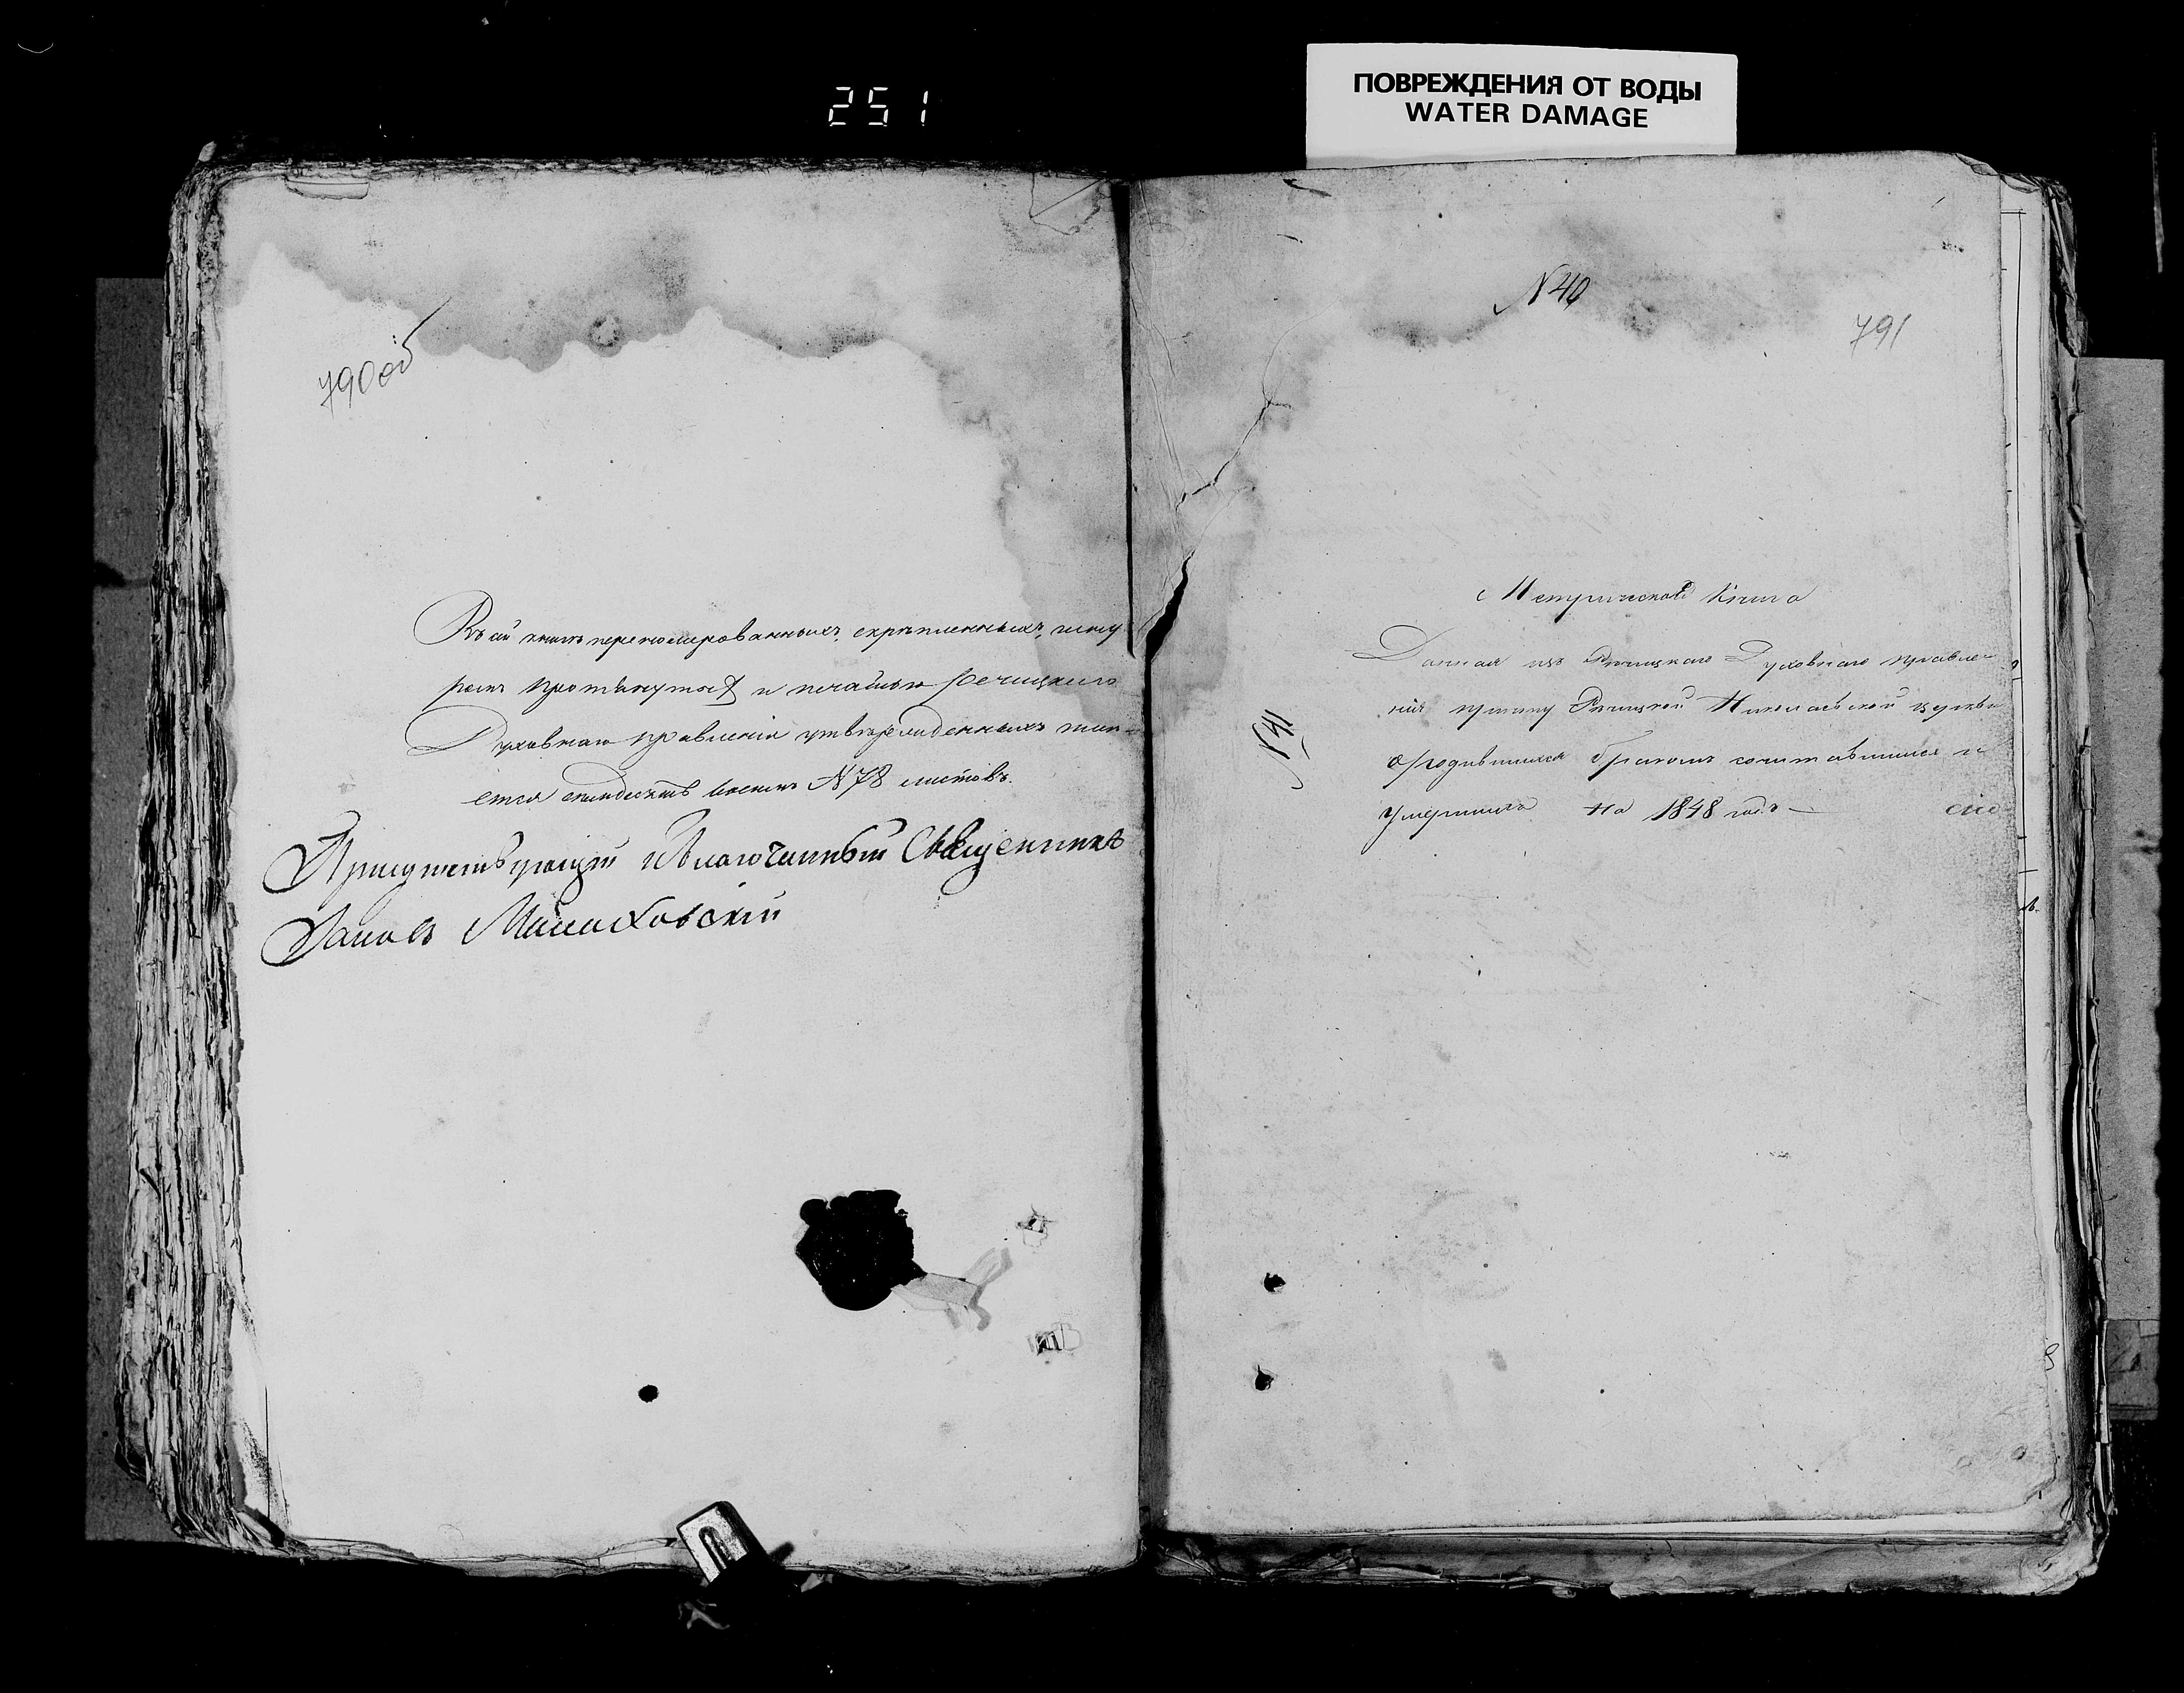 251
ПОВРЕЖДЕНИЯ ОТ ВОДЫ
WATER DAMAGE
790об
Въ сей книгѣ перенумерованныхъ, скрѣпленныхъ, шну
ромъ протянутыхъ и печатью Речицкаго
Духовнаго правленія утвержденныхъ
ется семдесятъ восемь N78 листовъ.
Присутствующій и Благочинный Священникъ
N40
791
N41
Метрическая Книга
Данная изъ Рѣчицкаго Духовнаго правле
нія причту Рѣчицкой Николаевской церкви
о родившихся бракомъ сочитавшихся и
умершихъ на 1848 годъ —